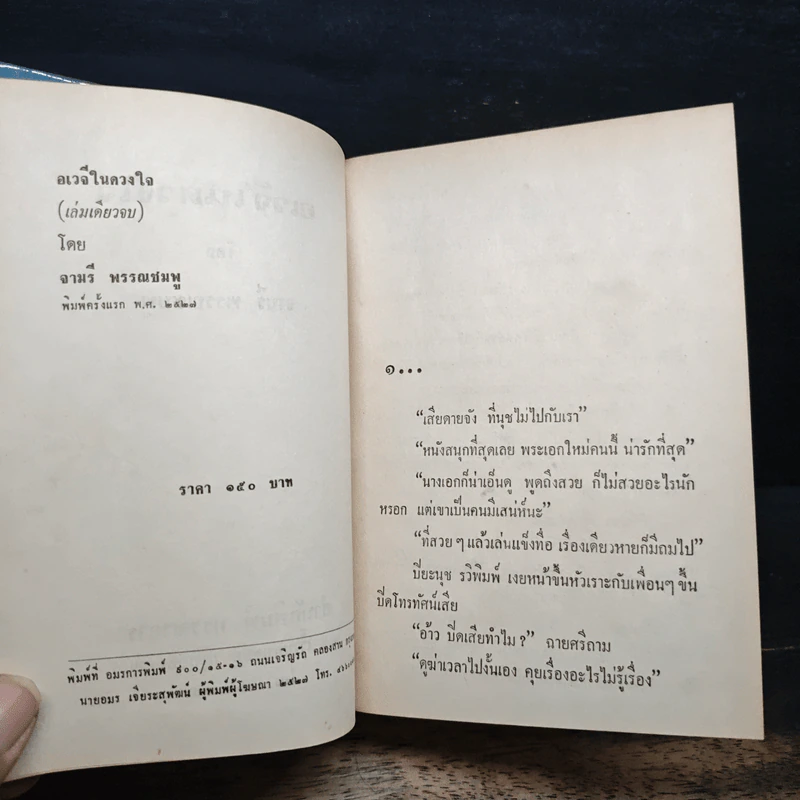 อเวจีในดวงใจ
(เล่มเดียวจบ)
โดย
จามรี พรรณชมพู
พิมพ์ครั้งแรก พ.ศ. ๒๕๒๗
ราคา ๑๕๐ บาท
พิมพ์ที่ อมรการพิมพ์ ๙๐๐/๑๕-๑๖ ถนนเจริญรัถ คลองสาน
นายอมร เจียระสุพัฒน์ ผู้พิมพ์ผู้โฆษณา ๒๕๒๗ โทร.
๑...
“เสียดายจัง ที่นุชไม่ไปกับเรา”
“หนังสนุกที่สุดเลย พระเอกใหม่คนนี้ น่ารักที่สุด”
“นางเอกก็น่าเอ็นดู พูดถึงสวย ก็ไม่สวยอะไรนัก
หรอก แต่เขาเป็นคนมีเสน่ห์นะ”
“ที่สวย ๆ แล้วเล่นแข็งทื่อ เรื่องเดียวหายก็มีถมไป”
ปิยะนุช รวิพิมพ์ เงยหน้าขึ้นหัวเราะกับเพื่อนๆ ขึ้น
ปิดโทรทัศน์เสีย
“อ้าว ปิดเสียทำไม ?” ฉายศรีถาม
“ดูฆ่าเวลาไปงั้นเอง คุยเรื่องอะไรไม่รู้เรื่อง”